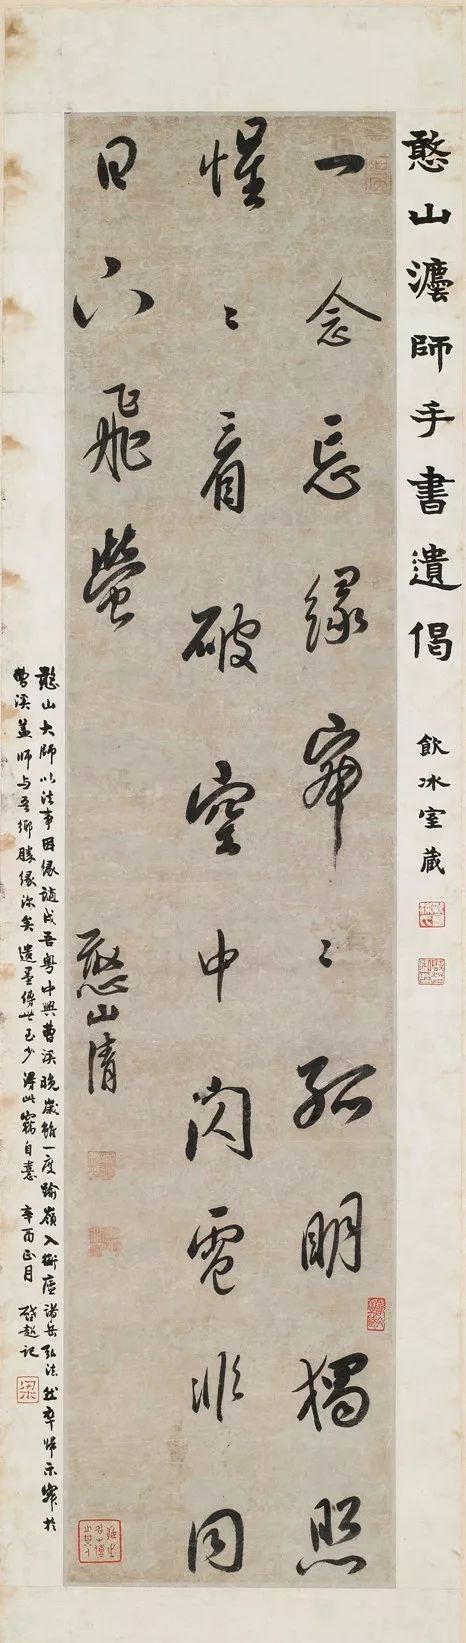 憨山灋師手書遺偈
飲冰室藏
一念忘緣寂〻孤明獨照
惺〻看破空中閃電非同
日下飛螢
憨山清
憨山大師以法事因緣謫戍吾粵中興曹溪晚歲雖一度踰嶺入衡廬諸岳弘法然卒歸示寂於
曹溪蓋師與吾鄉勝緣深矣遺墨傳世已少得此竊自憙 辛酉正月 啓超記